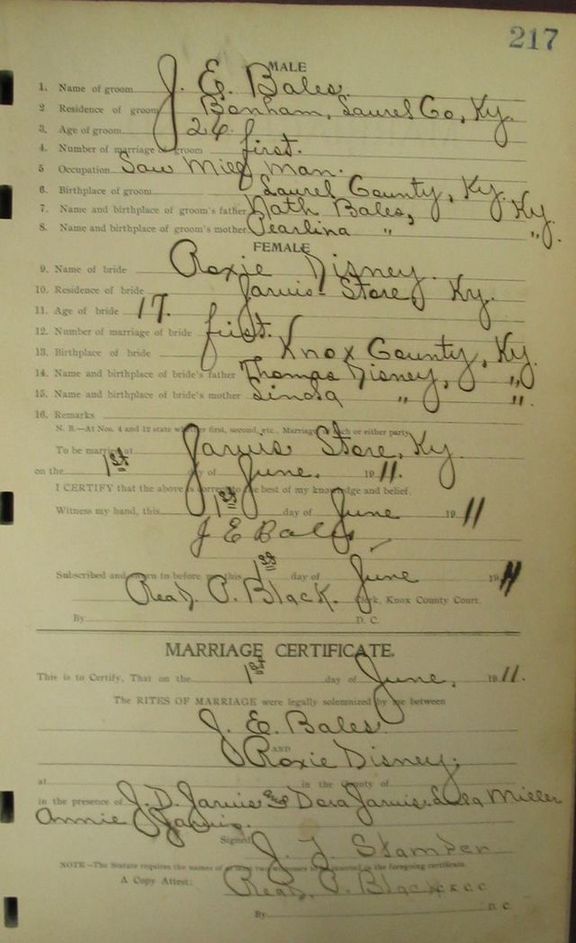 217
MALE
1. Name of groom J. E. Bales.
2 Residence of groom Bonham, Laurel Co, Ky.
3. Age of groom 26.
4. Number of marriage of groom first.
5 Occupation Saw Mill man.
6. Birthplace of groom Laurel County, Ky.
7. Name and birthplace of groom's father Nath Bales, Ky.
8. Name and birthplace of groom's mother Pearlina " ".
FEMALE
9. Name of bride Roxie Disney.
10. Residence of bride Jarvis Store, Ky.
11. Age of bride 17.
12. Number of marriage of bride first.
13. Birthplace of bride Knox County, Ky.
14. Name and birthplace of bride's father Thomas Disney, "
15. Name and birthplace of bride's mother " ".
16. Remarks
N. B.—At Nos. 4 and 12 state whether first, second, etc., Marriage of each or either party.
To be married at Jarvis Store, Ky.
on the 1st day of June. 1911.
I CERTIFY that the above is correct to the best of my knowledge and belief.
Witness my hand, this 1st day of June 1911
J E Bales
Subscribed and sworn to before me this 1st day of June 1911
Read. P. Black. Clerk, Knox County Court.
By D. C.
MARRIAGE CERTIFICATE.
This is to Certify, That on the 1st day of June, 1911.
The RITES OF MARRIAGE were legally solemnized by me between
J. E. Bales
AND
Roxie Disney,
at in the County of
in the presence of J. D. Jarvis and Dora Jarvis. Lula Miller
Annie Jarvis.
Signed J. J. Stamper
NOTE—The Statute requires the names of at least two witnesses be inserted in the foregoing certificate.
A Copy Attest: Read. P. Black K C C
By D. C.